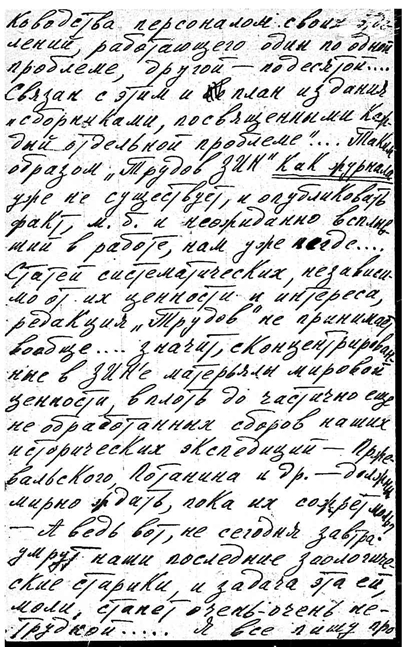 ководства персоналом своих отде-
лений, работающего один по одной
проблеме, другой — по десятой....
Связан с этим и план издания
"сборниками, посвященными каж-
дый отдельной проблеме".... Таким
образом "Трудов ЗИН" как журнала
уже не существует, и опубликовать
факт, м. б. и неожиданно всплыв-
ший в работе, нам уже негде....
Статей систематических, независи-
мо от их ценности и интереса,
редакция "Трудов" не принимает
вообще.... Значит, сконцентрирован-
ные в ЗИН'е матерьялы мировой
ценности, вплоть до частично еще
не обработанных сборов наших
исторических экспедиций — Прже-
вальского, Потанина и др. — должны
мирно ждать, пока их сожрет моль?
— А ведь вот, не сегодня завтра
умрут наши последние зоологиче-
ские старики, и задача эта ей,
моли, станет очень-очень не-
трудной..... Я все пишу про